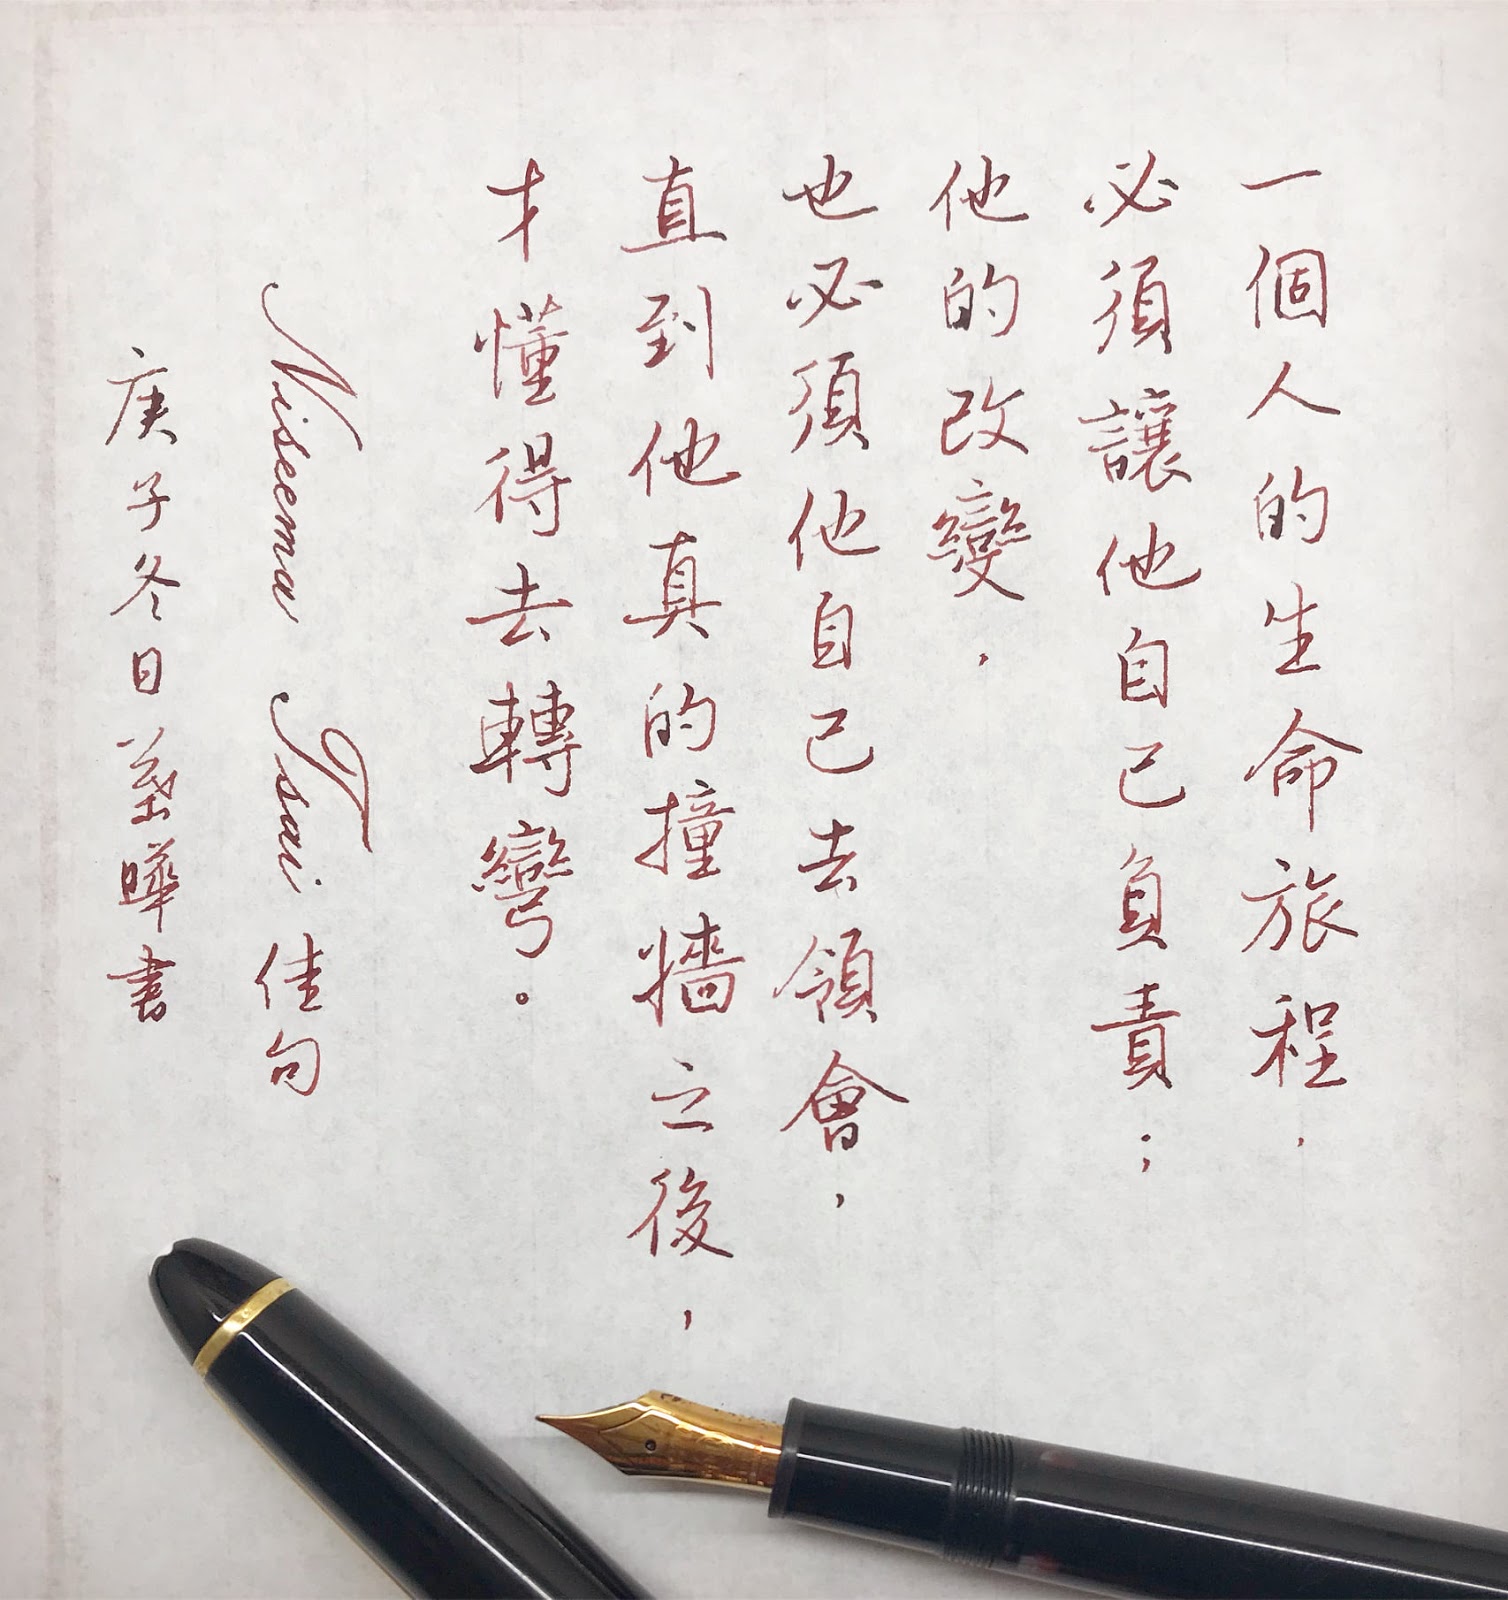 一個人的生命旅程，
必須讓他自己負責；
他的改變，
也必須他自己去領會，
直到他真的撞牆之後，
才懂得去轉彎。
Nisema Tsai 佳句
庚子冬日葉曄書